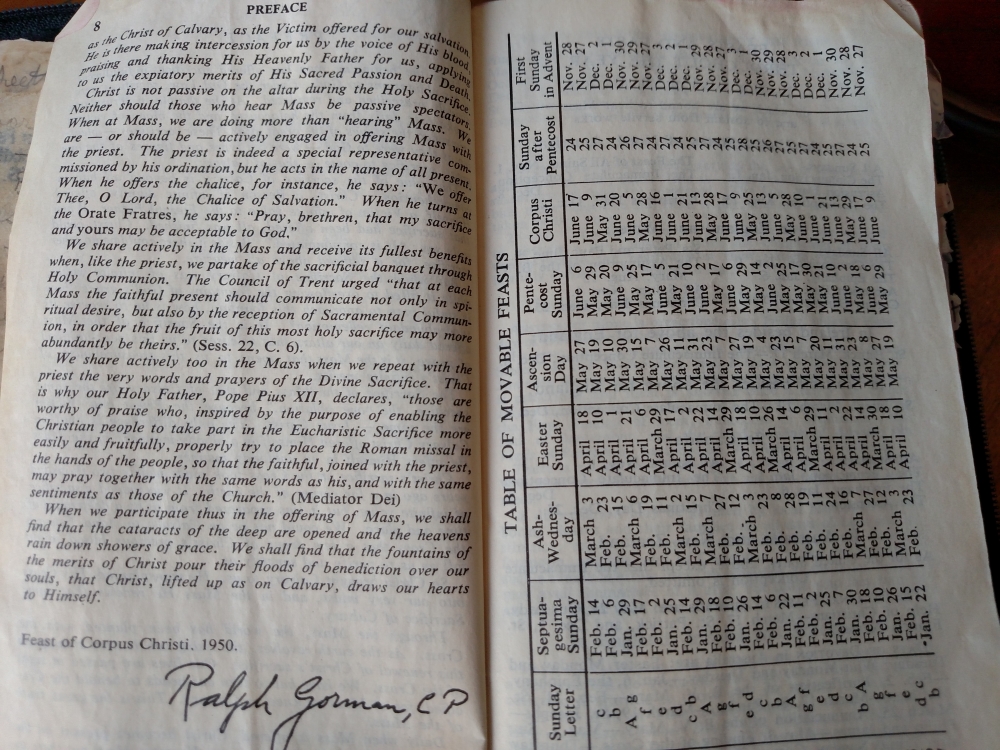 8
PREFACE
as the Christ of Calvary, as the Victim offered for our salvation.
He is there making intercession for us by the voice of His blood,
praising and thanking His Heavenly Father for us, applying
to us the expiatory merits of His Sacred Passion and Death.
Christ is not passive on the altar during the Holy Sacrifice.
Neither should those who hear Mass be passive spectators.
When at Mass, we are doing more than "hearing" Mass. We
are — or should be — actively engaged in offering Mass with
the priest. The priest is indeed a special representative com-
missioned by his ordination, but he acts in the name of all present.
When he offers the chalice, for instance, he says: "We offer
Thee, O Lord, the Chalice of Salvation." When he turns at
the Orate Fratres, he says: "Pray, brethren, that my sacrifice
and yours may be acceptable to God."
We share actively in the Mass and receive its fullest benefits
when, like the priest, we partake of the sacrificial banquet through
Holy Communion. The Council of Trent urged "that at each
Mass the faithful present should communicate not only in spi-
ritual desire, but also by the reception of Sacramental Commun-
ion, in order that the fruit of this most holy sacrifice may more
abundantly be theirs." (Sess. 22, C. 6).
We share actively too in the Mass when we repeat with the
priest the very words and prayers of the Divine Sacrifice. That
is why our Holy Father, Pope Pius XII, declares, "those are
worthy of praise who, inspired by the purpose of enabling the
Christian people to take part in the Eucharistic Sacrifice more
easily and fruitfully, properly try to place the Roman missal in
the hands of the people, so that the faithful, joined with the priest,
may pray together with the same words as his, and with the same
sentiments as those of the Church." (Mediator Dei)
When we participate thus in the offering of Mass, we shall
find that the cataracts of the deep are opened and the heavens
rain down showers of grace. We shall find that the fountains of
the merits of Christ pour their floods of benediction over our
souls, that Christ, lifted up as on Calvary, draws our hearts
to Himself.
Feast of Corpus Christi. 1950.
Ralph Gorman, C P
TABLE OF MOVABLE FEASTS
Sunday Letter | Septua-gesima Sunday | Ash-Wednes-day | Easter Sunday | Ascen-sion Day | Pente-cost Sunday | Corpus Christi | Sunday after Pentecost | First Sunday in Advent
c Feb. 14 March 3 April 18 May 27 June 6 June 17 24 Nov. 28
b Feb. 6 Feb. 23 April 10 May 19 May 29 June 9 25 Nov. 27
A g Jan. 29 Feb. 15 April 1 May 10 May 20 May 31 27 Dec. 2
f Feb. 17 March 6 April 21 May 30 June 9 June 20 24 Dec. 1
e Feb. 2 Feb. 19 April 6 May 15 May 25 June 5 26 Nov. 30
d Jan. 25 Feb. 11 March 29 May 7 May 17 May 28 27 Nov. 29
c b Feb. 14 March 2 April 17 May 26 June 5 June 16 24 Nov. 27
A Jan. 29 Feb. 15 April 2 May 11 May 21 June 1 27 Dec. 3
g Feb. 18 March 7 April 22 May 31 June 10 June 21 24 Dec. 2
f Feb. 10 Feb. 27 April 14 May 23 June 2 June 13 25 Dec. 1
e d Jan. 26 Feb. 12 March 29 May 7 May 17 May 28 27 Nov. 29
c Feb. 14 March 3 April 18 May 27 June 6 June 17 24 Nov. 28
b Feb. 6 Feb. 23 April 10 May 19 May 29 June 9 25 Nov. 27
A Jan. 22 Feb. 8 March 26 May 4 May 14 May 25 28 Dec. 3
g f Feb. 11 Feb. 28 April 14 May 23 June 2 June 13 25 Dec. 1
e Feb. 2 Feb. 19 April 6 May 15 May 25 June 5 26 Nov. 30
d Jan. 25 Feb. 11 March 29 May 7 May 17 May 28 27 Nov. 29
c Feb. 7 Feb. 24 April 11 May 20 May 30 June 10 25 Nov. 28
b A Jan. 30 Feb. 16 April 2 May 11 May 21 June 1 27 Dec. 3
g Feb. 18 March 7 April 22 May 31 June 10 June 21 24 Dec. 2
f Feb. 10 Feb. 27 April 14 May 23 June 2 June 13 25 Dec. 1
e Jan. 26 Feb. 12 March 30 May 8 May 18 May 29 27 Nov. 30
d c Feb. 15 March 3 April 18 May 27 June 6 June 17 24 Nov. 28
b Jan. 22 Feb. 23 April 10 May 19 May 29 June 9 25 Nov. 27